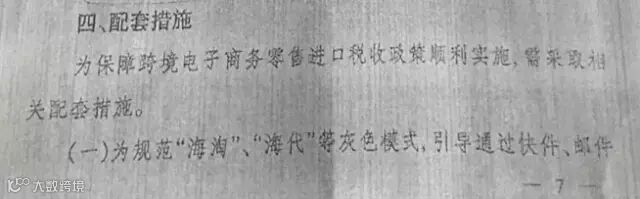 四、配套措施
为保障跨境电子商务零售进口税收政策顺利实施,需采取相
关配套措施。
(一)为规范“海淘”、“海代”等灰色模式,引导通过快件、邮件
— 7 —
大数跨境